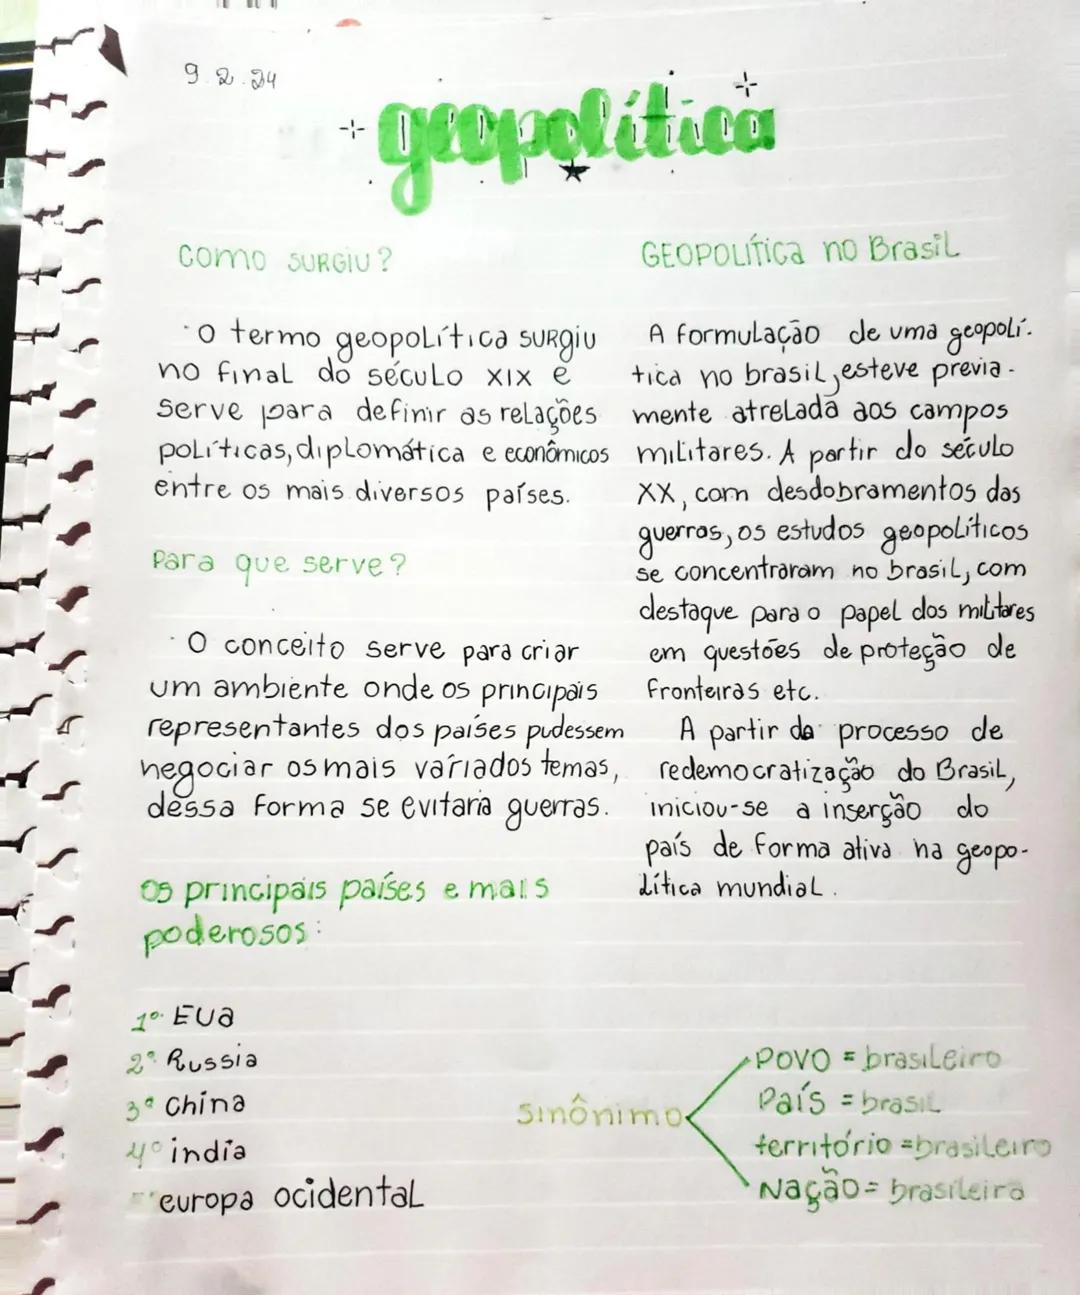 9.2.24
geopolítica
Como SURGIU?
·O termo geopolítica surgiu
no final do século XIX e
serve para definir as relações
políticas, diplomática e econômicos
entre os mais diversos países.
Para que serve?
·O conceito serve para criar
um ambiente onde os principais
representantes dos países pudessem
negociar os mais variados temas,
dessa forma se evitaria guerras.
Os principais países e mais
poderosos:
1º EUA
2º Russia
3º China
4º india
europa ocidental
GEOPOLÍTICA no Brasil
A formulação de uma geopolí-
tica no brasil, esteve previa-
mente atrelada aos campos
militares. A partir do século
XX, com desdobramentos das
guerras, os estudos geopolíticos
se concentraram no brasil, com
destaque para o papel dos militares
em questões de proteção de
fronteiras etc.
A partir da processo de
redemocratização do Brasil,
iniciou-se a inserção do
país de forma ativa na geopo-
lítica mundial.
Sinônimo
POVO = brasileiro
País = brasil
território = brasileiro
Nação = brasileira